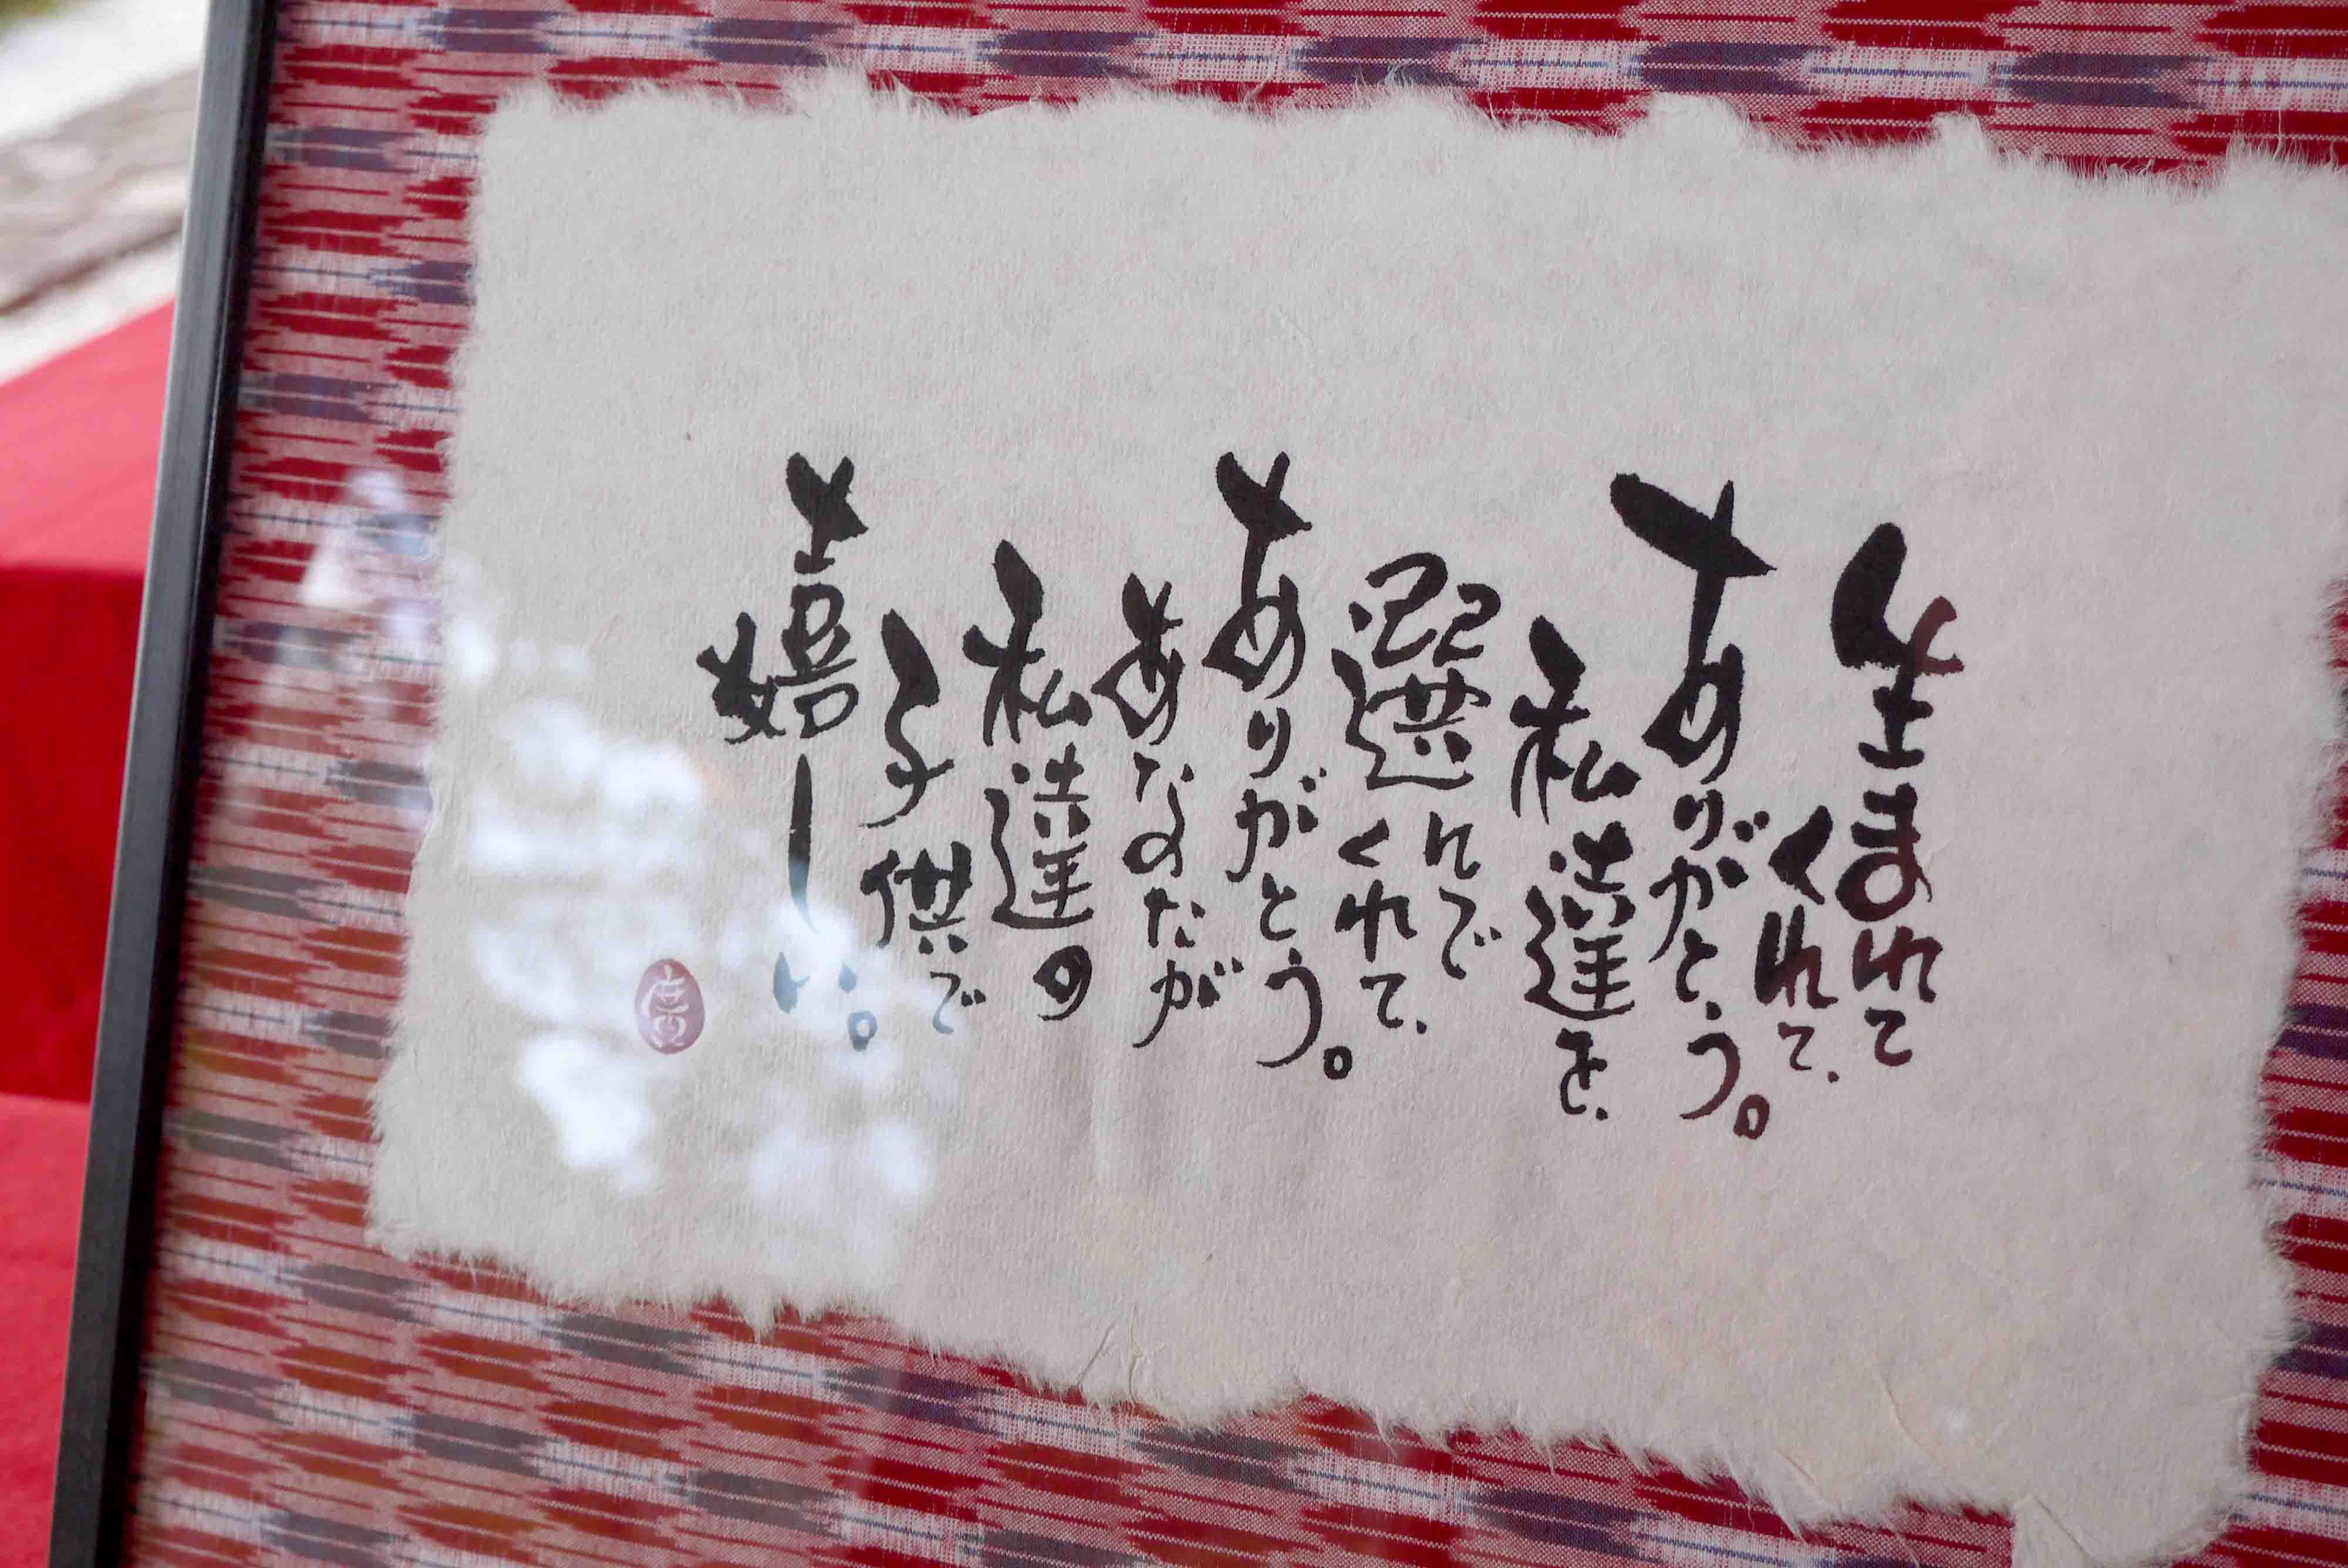 生まれて
くれて、
ありがとう。
私達を、
選んで
くれて、
ありがとう。
あなたが
私達の
子供で
嬉しい。